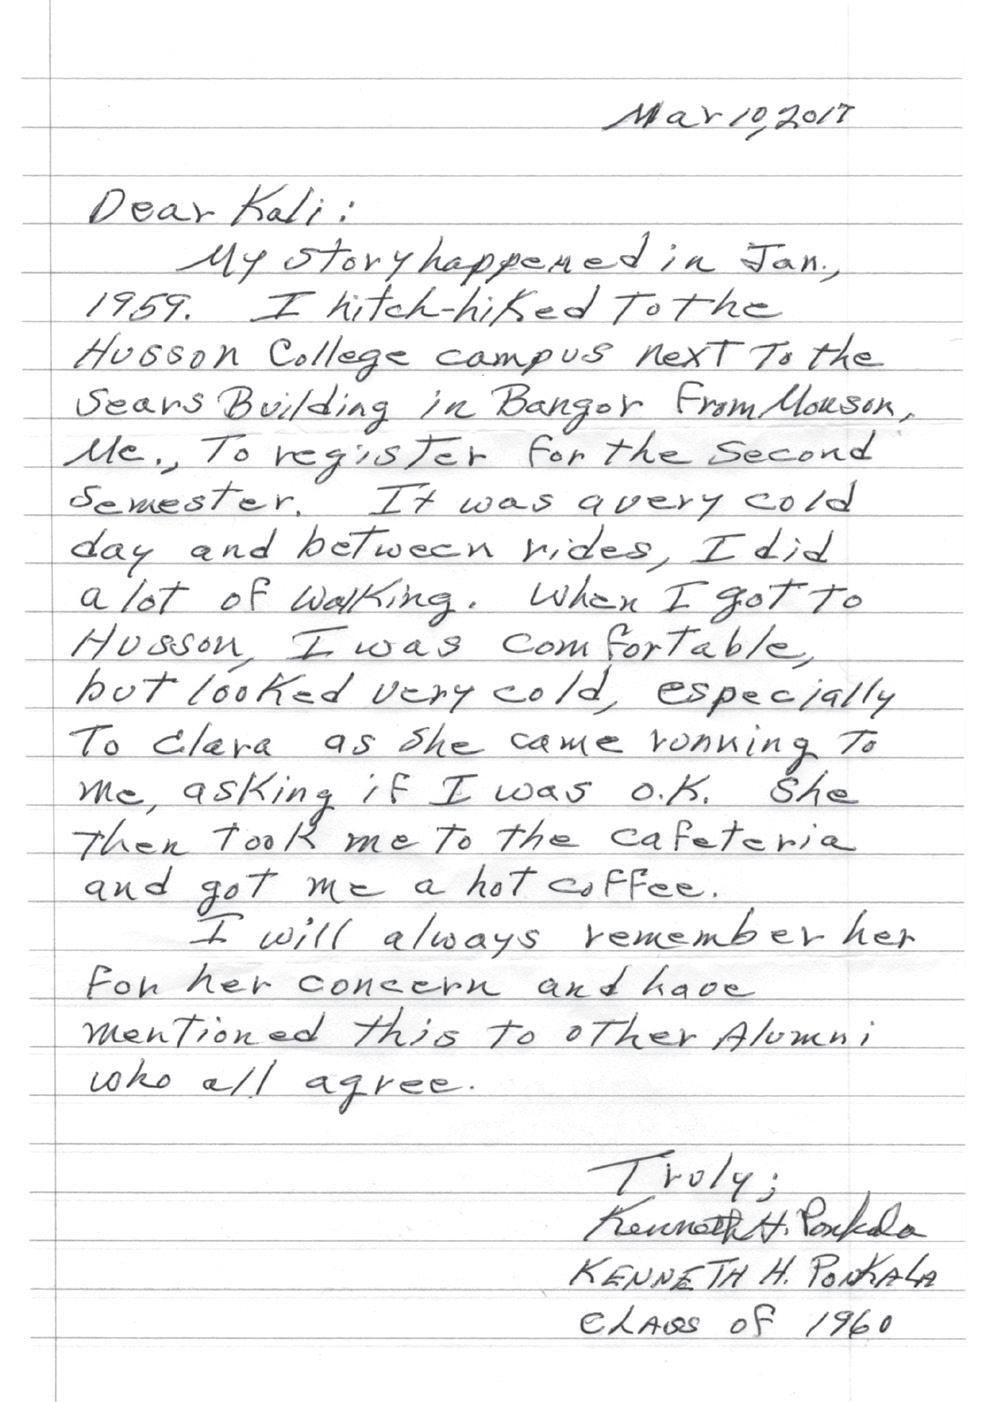 Mar 10, 2017
Dear Kali:
My story happened in Jan.,
1959. I hitch-hiked To the
Husson College campus next To the
Sears Building in Bangor From Monson,
Me., To register for the Second
Semester. It was a very cold
day and between rides, I did
a lot of walking. When I got to
Husson, I was comfortable,
but looked very cold, especially
To Clara as she came running To
me, asking if I was o.K. She
Then took me to the cafeteria
and got me a hot coffee.
I will always remember her
for her concern and have
mentioned this to other Alumni
who all agree.
Truly;
Kenneth H. Ponkala
KENNETH H. PONKALA
CLASS OF 1960